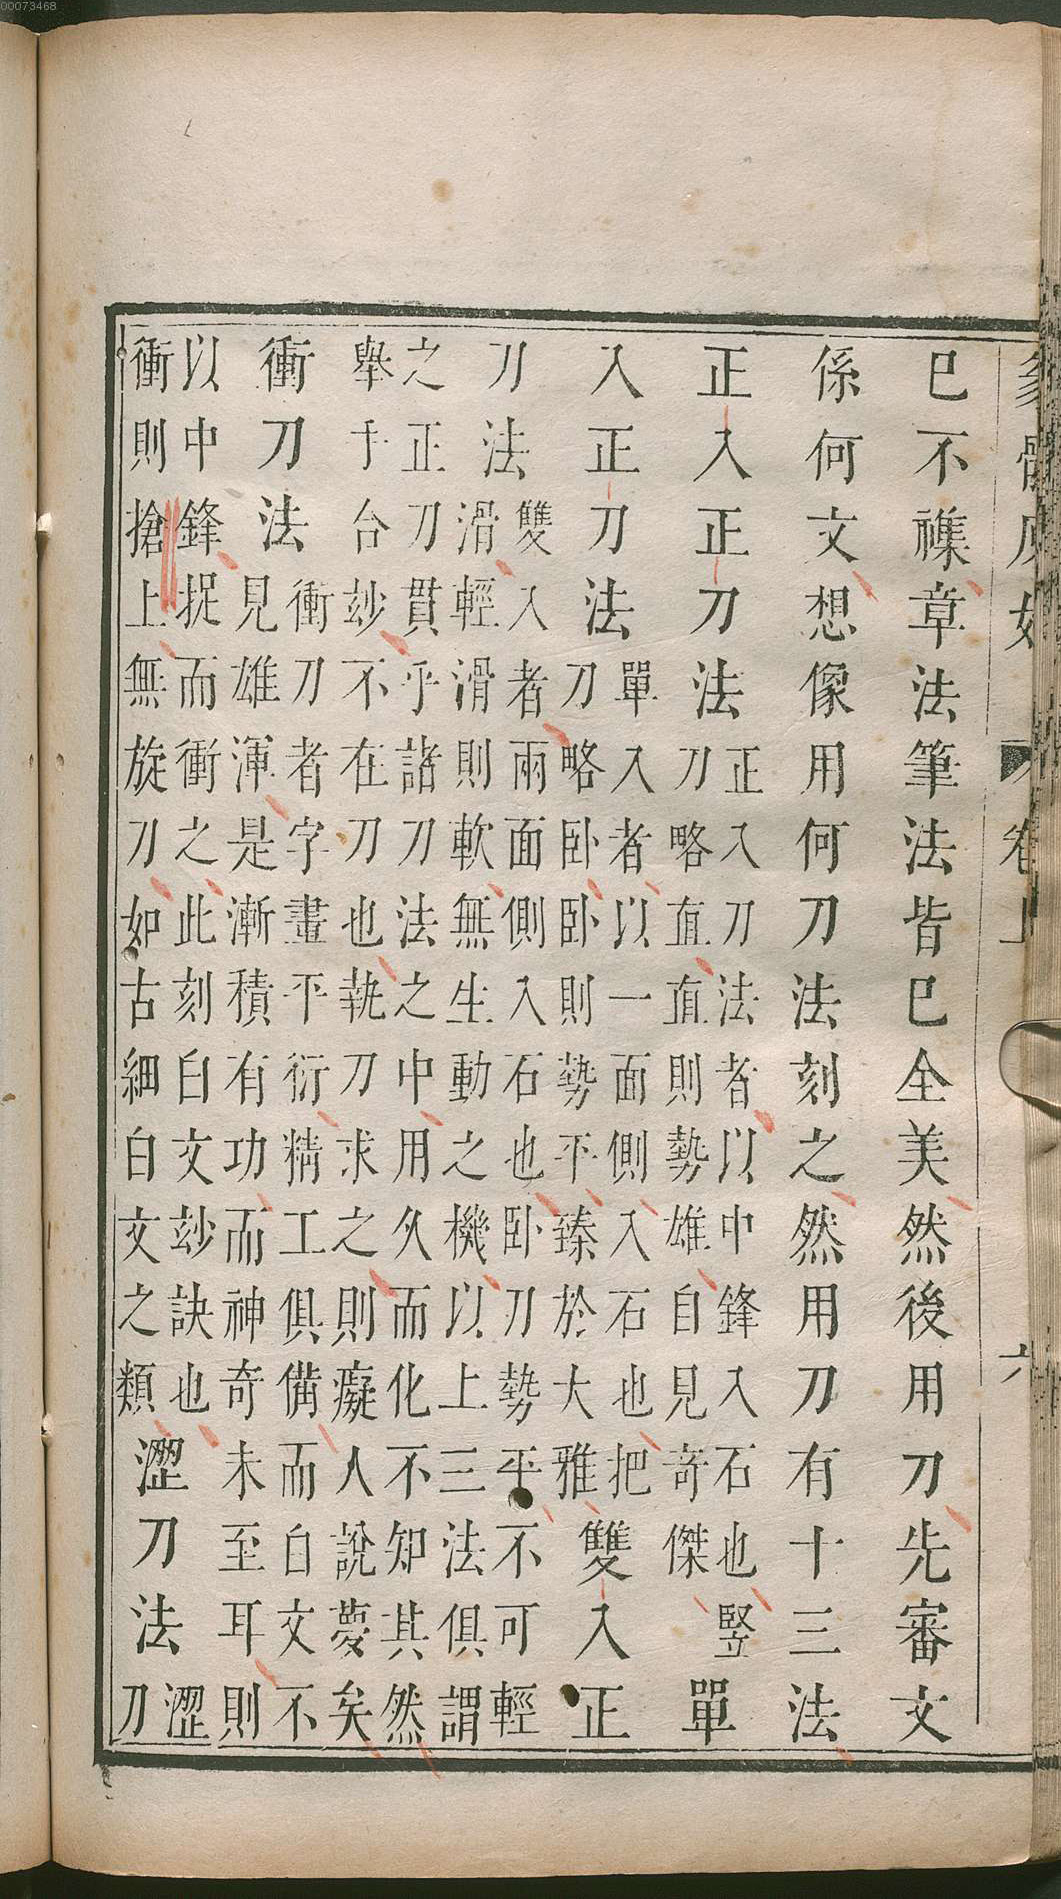 卷上
六
已不襍章法筆法皆已全美然後用刀先審文
係何文想像用何刀法刻之然用刀有十三法
正入正刀法
正入刀法者以中鋒入石也竪
刀略直直則勢雄自見奇傑
單
入正刀法
單入者以一面側入石也把
刀略卧卧則勢平臻於大雅
雙入正
刀法
雙入者兩面側入石也卧刀勢平不可輕
滑輕滑則軟無生動之機以上三法俱謂
之正刀貫乎諸刀法之中用久而化不知其然
舉手合玅不在刀也執刀求之則癡人說夢矣
衝刀法
衝刀者字畫平衍精工俱備而白文不
見雄渾是漸積有功而神奇未至耳則
以中鋒捉而衝之此刻白文玅訣也
衝則搶上無旋刀如古細白文之類
澀刀法
澀
刀
00073468